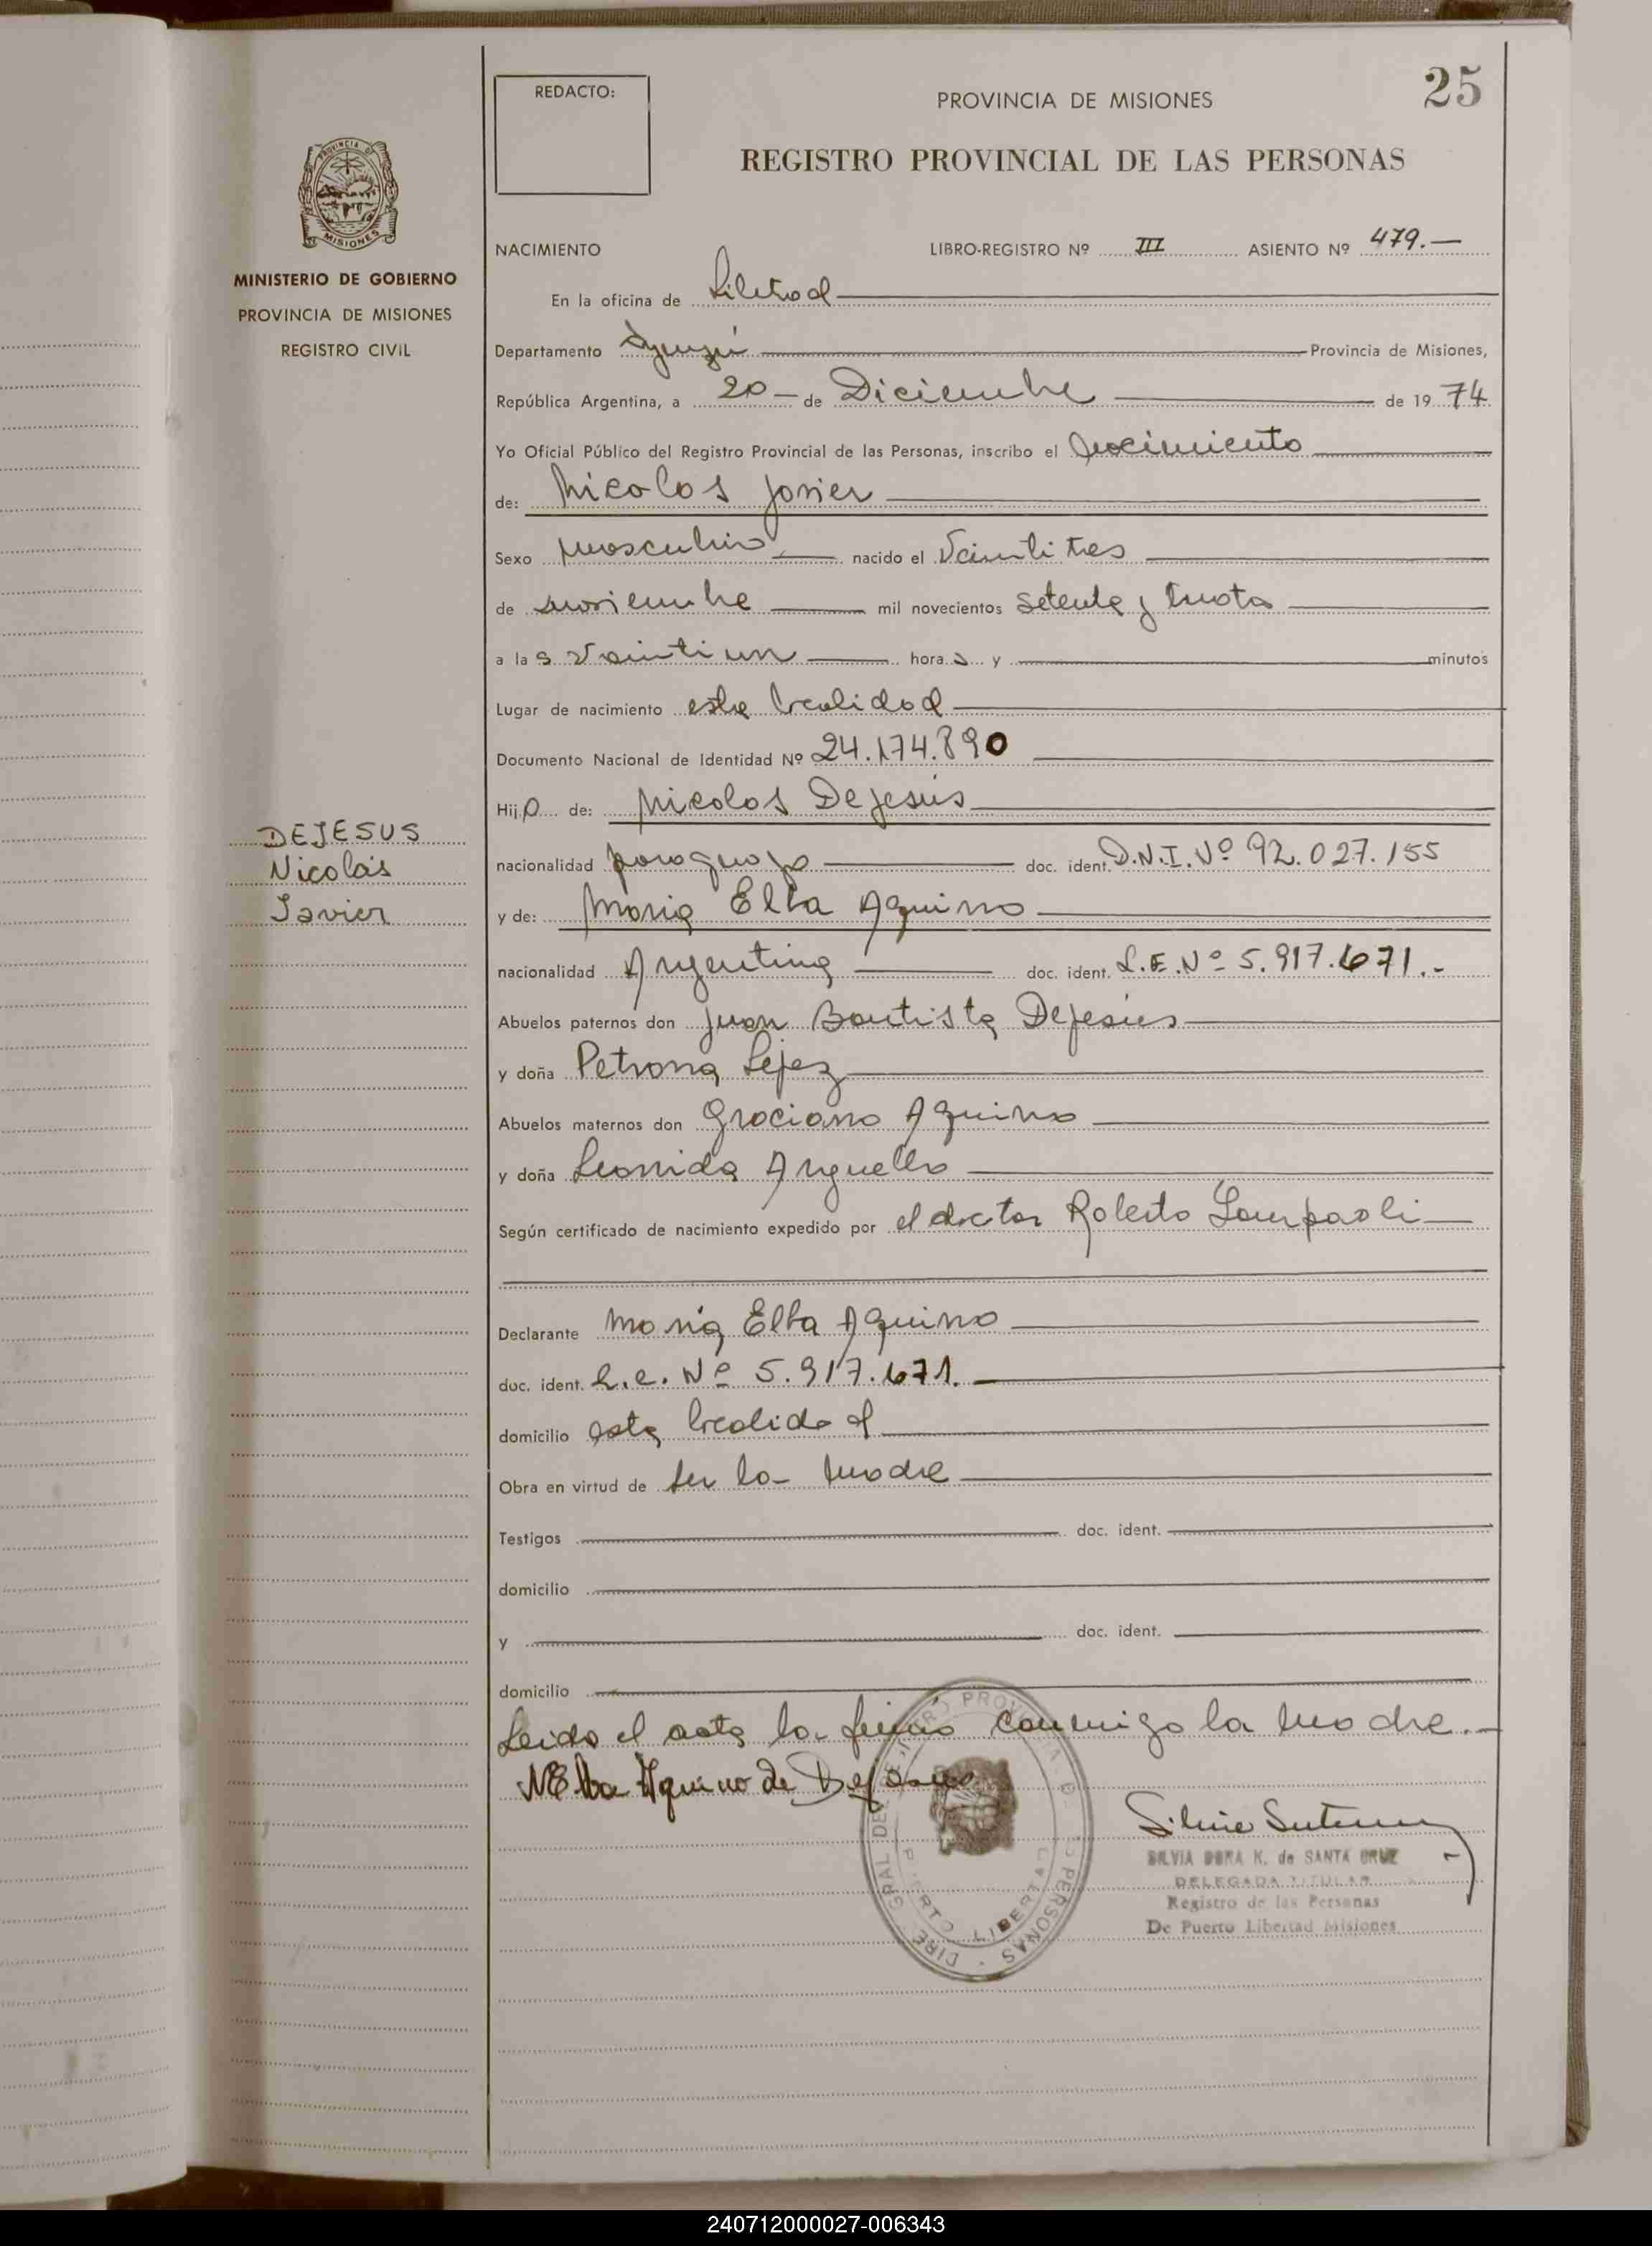 25
REDACTO:
PROVINCIA DE MISIONES
REGISTRO PROVINCIAL DE LAS PERSONAS
PROVINCIA DE
MISIONES
MINISTERIO DE GOBIERNO
PROVINCIA DE MISIONES
REGISTRO CIVIL
DEJESUS
Nicolás
Javier
NACIMIENTO LIBRO-REGISTRO Nº III ASIENTO Nº 479.—
En la oficina de Libertad
Departamento Iguazú Provincia de Misiones,
República Argentina, a 20 — de Diciembre de 19 74
Yo Oficial Público del Registro Provincial de las Personas, inscribo el nacimiento
de: Nicolas Javier
Sexo masculino nacido el Veintitres
de noviembre mil novecientos setenta y cuatro
a la s veintiun hora s y minutos
Lugar de nacimiento esta localidad
Documento Nacional de Identidad Nº 24.174.890
Hij o de: Nicolas Dejesús
nacionalidad paraguayo doc. ident. D.N.I. Nº 92.027.155
y de: Maria Elba Aquino
nacionalidad Argentina doc. ident. L.E. Nº 5.917.671.-
Abuelos paternos don Juan Bautista Dejesús
y doña Petrona
Abuelos maternos don Graciano Aquino
y doña Leonida Arguello
Según certificado de nacimiento expedido por el doctor Roberto
Declarante Maria Elba Aquino
doc. ident. L.e. Nº 5.917.671. —
domicilio esta localidad
Obra en virtud de ser la madre
Testigos doc. ident.
domicilio
y doc. ident.
domicilio
Leida el acta la firmó conmigo la madre.-
M E lba Aquino de Dejesus
SILVIA DORA K. de SANTA CRUZ
DELEGADA TITULAR
Registro de las Personas
De Puerto Libertad Misiones
240712000027-006343